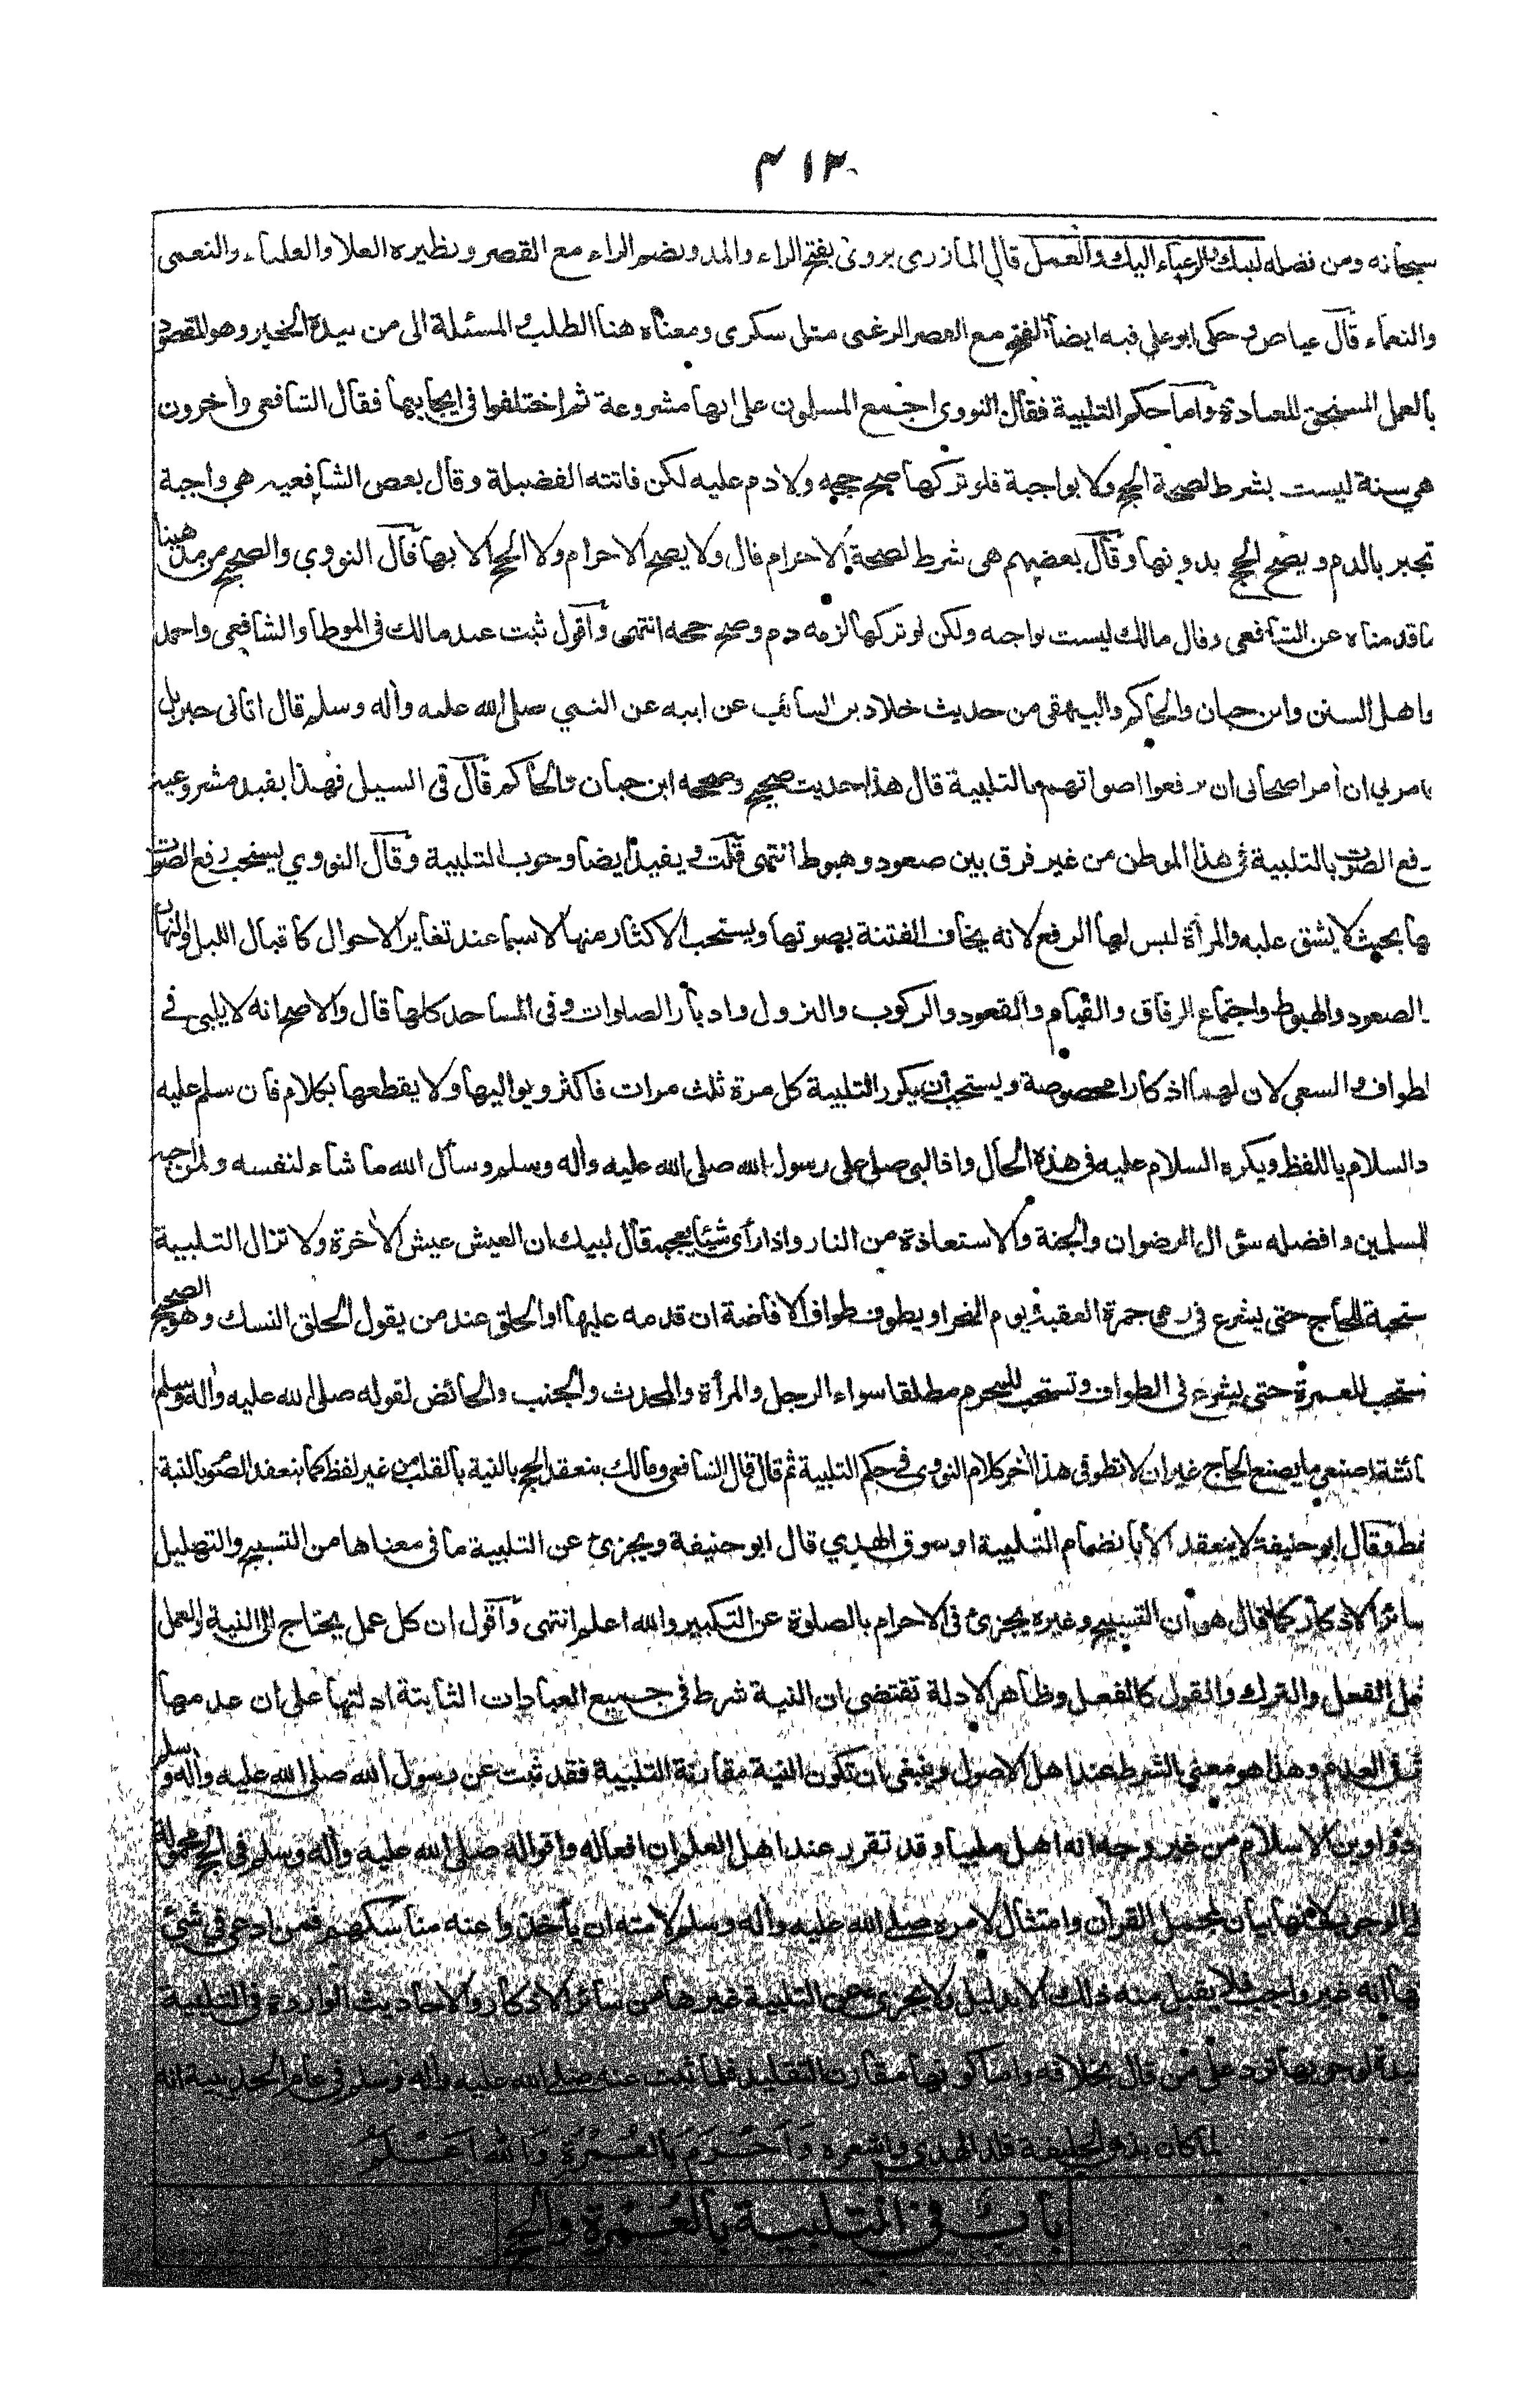 ٤١٣
سبحانه ومن فضله لبيك والرغباء اليك والعمل قال المازرى يروى بفتح الراء والمد وبضم الراء مع القصر ونظيره العلا والعلياء والنعمى
والنعماء قال عياض وحكى ابو على فيه ايضا الفتح مع القصر الرغبى مثل سكرى ومعناه هنا الطلب والمسئلة الى من بيده الخير وهو المقصود
بالعمل المستحق للعبادة واما حكم التلبية فقال النووى اجمع المسلمون على انها مشروعة ثم اختلفوا فى ايجابها فقال الشافعى وأخرون
هي سنة ليست بشرط لصحة الحج ولا بواجبة فلو تركها صح حجه ولا دم عليه لكن فاتته الفضيلة وقال بعض الشافعيه هى واجبة
تجبر بالدم ويصح الحج بدونها وقال بعضهم هى شرط لصحة الاحرام قال ولا يصح الاحرام ولا الحج الا بها قال النووي والصحيح من مذهبنا
ما قدمناه عن الشافعى وقال مالك ليست بواجبه ولكن لو تركها لزمه دم وصح حجه انتهى وأقول ثبت عند مالك فى الموطا والشافعى واحمد
واهل السنن وابن حبان والحاكم والبيهقى من حديث خلاد بن السائب عن ابيه عن النبي صلى الله عليه وأله وسلم قال اتانى جبريل
فامرنى ان أمر اصحابى ان يرفعوا اصواتهم بالتلبية قال هذا حديث صحيح وصححه ابن حبان والحاكم قال فى السيل فهذا يفيد مشروعية
رفع الصوت بالتلبية فى هذا الموطن من غير فرق بين صعود وهبوط انتهى قلت ويفيد ايضا وجوب التلبية وقال النووي يستحب رفع الصوت
بها بحيث لا يشق عليه والمرأة ليس لها الرفع لانه يخاف الفتنة بصوتها ويستحب الاكثار منها لا سيما عند تغاير الاحوال كاقبال الليل والنهار
والصعود والهبوط واجتماع الرفاق والقيام والقعود والركوب والنزول وادبار الصلوات وفى المساجد كلها قال والاصح انه لا يلبى فى
الطواف والسعي لان لهما اذكارا مخصوصة ويستحب ان يكرر التلبية كل مرة ثلث مرات فاكثر ويواليها ولا يقطعها بكلام فان سلم عليه
رد السلام باللفظ ويكره السلام عليه فى هذه الحال واذا لبى صلى على رسول الله صلى الله عليه وأله وسلم وسأل الله ما شاء لنفسه ولمن احبه
وللمسلمين وافضله سؤال الرضوان والجنة والاستعاذة من النار واذا رأى شيئا يعجبه قال لبيك ان العيش عيش الأخرة ولا تزال التلبية
مستحبة للحاج حتى يشرع فى رمى جمرة العقبة يوم النحر او يطوف طواف الافاضة ان قدمه عليها او الحلق عند من يقول الحلق النسك وهو الصحيح
وتستحب للعمرة حتى يشرع فى الطواف وتستحب للمحرم مطلقا سواء الرجل والمرأة والمحدث والجنب والحائض لقوله صلى الله عليه وأله وسلم
لعائشة اصنعى ما يصنع الحاج غير ان لا تطوفى هذا أخر كلام النووى فى حكم التلبية ثم قال قال الشافعى ومالك ينعقد الحج بالنية بالقلب من غير لفظ كما ينعقد الصوم بالنية
فقط وقال ابو حنيفة لا ينعقد الا بانضمام التلبية او سوق الهدي قال ابو حنيفة ويجزئ عن التلبية ما فى معناها من التسبيح والتهليل
وسائر الاذكار كما قال هو ان التسبيح وغيره يجزئ فى الاحرام بالصلوة عن التكبير والله اعلم انتهى وأقول ان كل عمل يحتاج الى النية والعمل
يشمل الفعل والترك والقول كالفعل وظاهر الادلة تقتضى ان النية شرط فى جميع العبادات الثابتة ادلتها على ان عدمها
يؤثر فى العدم وهذا هو معنى الشرط عند اهل الاصول وينبغى ان تكون النية مقارنة التلبية فقد ثبت عن رسول الله صلى الله عليه وأله وسلم
فى دواوين الاسلام من غير وجه انه اهل ملبيا وقد تقرر عند اهل العلم ان افعاله واقواله صلى الله عليه وأله وسلم فى الحج محمولة
على الوجوب لانها بيان لمجمل القرأن وامتثال لامره صلى الله عليه وأله وسلم لامته ان يأخذوا عنه مناسكهم فمن ادعى فى شئ
منها انه غير واجب فلا يقبل منه ذلك الا بدليل ولا يجزئ عن التلبية غيرها من سائر الاذكار والاحاديث الواردة فى التلبية
مفيدة لوجوبها ترد على من قال بخلافه واما كونها مقارن التقليد فلما ثبت عنه صلى الله عليه وأله وسلم فى عام الحديبية انه
لما كان بذى الحليفة قلد الهدى واشعره وَاَحْرَمَ بالعُمْرَةِ وَالله اَعْلَمُ
بابٌ فى التلبية بالعُمْرة والحج